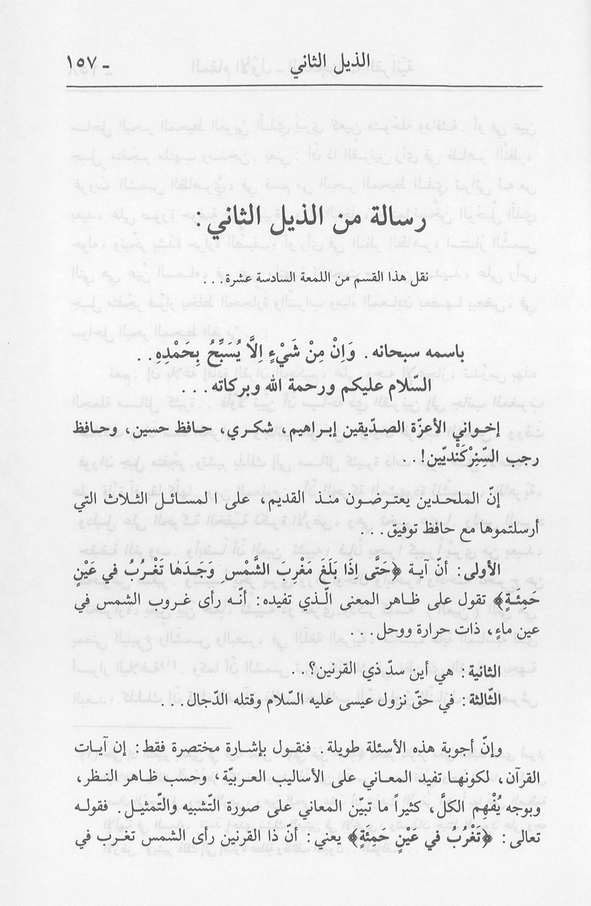 الذيل الثاني
ـ ١٥٧
رسالة من الذيل الثاني:
نقل هذا القسم من اللمعة السادسة عشرة...
باسمه سبحانه. وَاِنْ مِنْ شَيْءٍ اِلَّا يُسَبِّحُ بِحَمْدِهِ..
السّلام عليكم ورحمة الله وبركاته...
إخواني الأعزّة الصدّيقين إبراهيم، شكري، حافظ حسين، وحافظ
رجب السِّنِرْكَنْديّين!..
إنّ الملحدين يعترضون منذ القديم، على ا لمسائل الثلاث التي
أرسلتموها مع حافظ توفيق...
الأولى: أنّ آية ﴿حَتَّى إذَا بَلَغَ مَغْرِبَ الشَّمْسِ وَجَدَهَا تَغْرُبُ في عَيْنٍ
حَمِئَةٍ﴾ تقول على ظاهر المعنى الّذي تفيده: أنّه رأى غروب الشمس في
عين ماءٍ، ذات حرارة ووحل...
الثانية: هي أين سدّ ذي القرنين؟..
الثّالثة: في حقّ نزول عيسى عليه السّلام وقتله الدّجال...
وإنّ أجوبة هذه الأسئلة طويلة. فنقول بإشارة مختصرة فقط: إن آيات
القرآن، لكونها تفيد المعاني على الأساليب العربيّة، وحسب ظاهر النظر،
وبوجه يُفْهِم الكلَّ، كثيراً ما تبيّن المعاني على صورة التّشبيه والتّمثيل. فقوله
تعالى: ﴿تَغْرُبُ في عَيْنٍ حَمِئَةٍ﴾ يعني: أنّ ذا القرنين رأى الشمس تغرب في